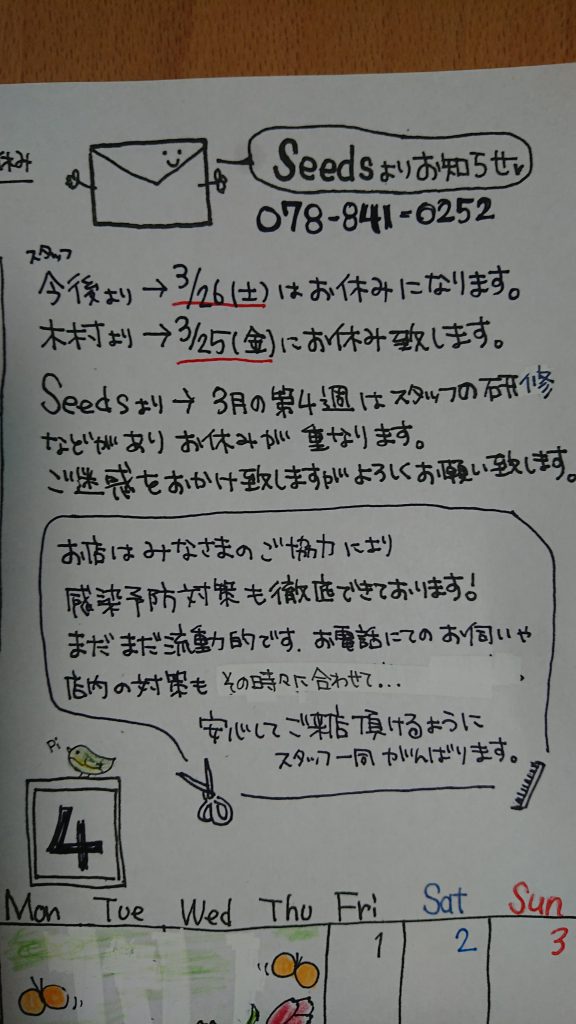 休み
Seedsよりお知らせ
078-841-0252
スタッフ
今後より→3/26(土)はお休みになります。
木村より→3/25(金)にお休み致します。
Seedsより→3月の第4週はスタッフの研修
などがありお休みが重なります。
ご迷惑をおかけ致しますがよろしくお願い致します。
お店はみなさまのご協力により
感染予防対策も徹底できております!
まだまだ流動的です.お電話にてのお伺いや
店内の対策もその時々に合わせて...
安心してご来店頂けるように
スタッフ一同がんばります。
Pi
4
Mon Tue Wed Thu Fri Sat Sun
1 2 3